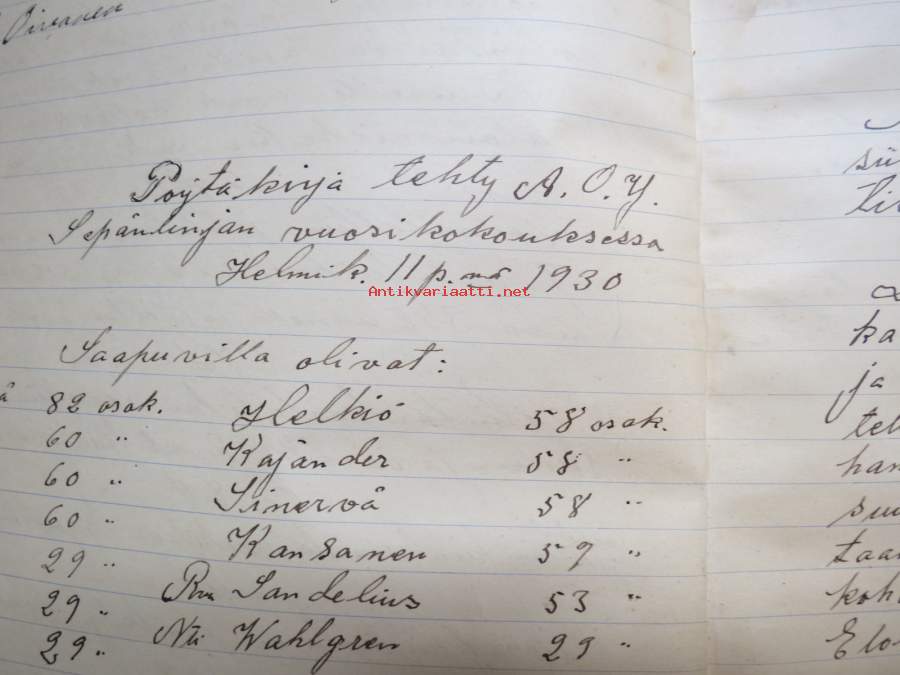 Oivanen
Pöytäkirja tehty A.O.Y.
Sepänlinjan vuosikokouksessa
Helmik. 11 p.nä 1930
Antikvariaatti.net
Saapuvilla olivat:
ä 82 osak. Helkiö 58 osak.
60 " Kajander 58 "
60 " Sinervä 58 "
60 " Kansanen 59 "
29 " Rva Sandelius 53 "
29 " Nti Wahlgren 29 "
29 "
ka
ja
teh
han
suu
taan
koh
Elo